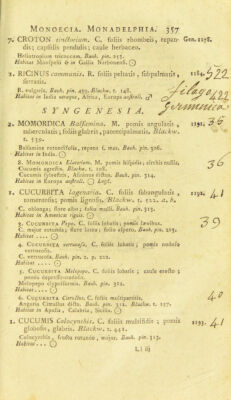 MONOECIA. MONADELPHIA. 357
7. CROTON tinctorium. C. foliis rhombeis, repan- Gen. 1178.
dis; capsulis pendulis; caule herbaceo.
Heliotropium tricoccum. Bauh. pin. 253.
Habitat Monspelii & in Gallia Narbonensi. ☉
1. RICINUS communis. R. foliis peltatis, subpalmatis, 522
serratis.
R. vulgaris. Bauh. pin. 432. Blackw. t. 148.
Habitat in India utraque, Africa, Europa australi.
SYNGENESIA.
2. MOMORDICA Balsamina. M. pomis angulatis 35
tuberculatis; foliis glabris, patentipalmatis. Blackw.
t. 539.
Balsamina rotundifolia, repens f. mas. Bauh. pin. 306.
Habitat in India. ☉
8. MOMORDICA Elaterium. M. pomis hispidis; cirrhis nullis. 36
Cucumis agrestis. Blackw. t. 108.
Cucumis sylvestris, Asininus dictus. Bauh. pin. 314.
Habitat in Europa australi. ☉
1. CUCURBITA lagenaria. C. foliis subangulatis, 41
tomentosis; pomis lignosis. Blackw. t. 522. a. b.
C. oblonga; flore albo; folio molli. Bauh. pin. 313.
Habitat in Americæ riguis. ☉
3. CUCURBITA Pepo. C. foliis lobatis; pomis lævibus. 39
C. major rotunda; flore luteo; folio aspero. Bauh. pin. 312.
Habitat .... ☉
4. CUCURBITA verrucosa. C. foliis lobatis; pomis nodoso
verrucosis.
C. verrucosa. Bauh. pin. 2. p. 222.
Habitat .... ☉
5. CUCURBITA Melopepo. C. foliis lobatis; caule erecto;
pomis depresso
Melopepo clypeiformis. Bauh. pin. 312.
Habitat .... ☉
6. CUCURBITA Citrullus. C. foliis multipartitis. 40
Anguria Citrullus dicta. Bauh. pin. 312. Blackw. t. 157.
Habitat in Apulia, Calabria, Sicilia. ☉
1. CUCUMIS Colocynthis. C. foliis multifidis; pomis 41
globosis, glabris. Blackw. t. 441.
Colocynthis, fructu rotundo, major. Bauh. pin. 313.
Habitat .... ☉